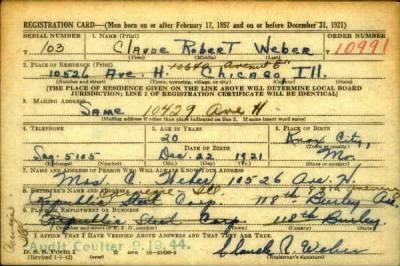 REGISTRATION CARD—(Men born on or after February 17, 1897 and on or before December 31, 1921)
SERIAL NUMBER 1. NAME (Print) ORDER NUMBER
103 Claude Robert Weber 10991
(First) (Middle) (Last)
2. PLACE OF RESIDENCE (Print)
10526 Ave. H. Chicago, Ill.
(Number and street) (Town, township, village, or city) (County) (State)
[THE PLACE OF RESIDENCE GIVEN ON THE LINE ABOVE WILL DETERMINE LOCAL BOARD
JURISDICTION; LINE 2 OF REGISTRATION CERTIFICATE WILL BE IDENTICAL]
3. MAILING ADDRESS
Same 10429 Ave H.
[Mailing address if other than place indicated on line 2. If same insert word same]
4. TELEPHONE 5. AGE IN YEARS 6. PLACE OF BIRTH
20 Knox City,
DATE OF BIRTH
Sag. 5105 Dec. 22 1921 Mo.
7. NAME AND ADDRESS OF PERSON WHO WILL ALWAYS KNOW YOUR ADDRESS
Mrs. C. Weber 10526 Ave. H.
8. EMPLOYER'S NAME AND ADDRESS
Republic Steel Corp. 118th Burley Ave.
9. PLACE OF EMPLOYMENT OR BUSINESS
Republic Steel Corp. 118th Burley
I AFFIRM THAT I HAVE VERIFIED ABOVE ANSWERS AND THAT THEY ARE TRUE.
Audit Coulter 9.19.44.
D. S. S. Form 1
(Revised 1-5-42)
Claude R. Weber